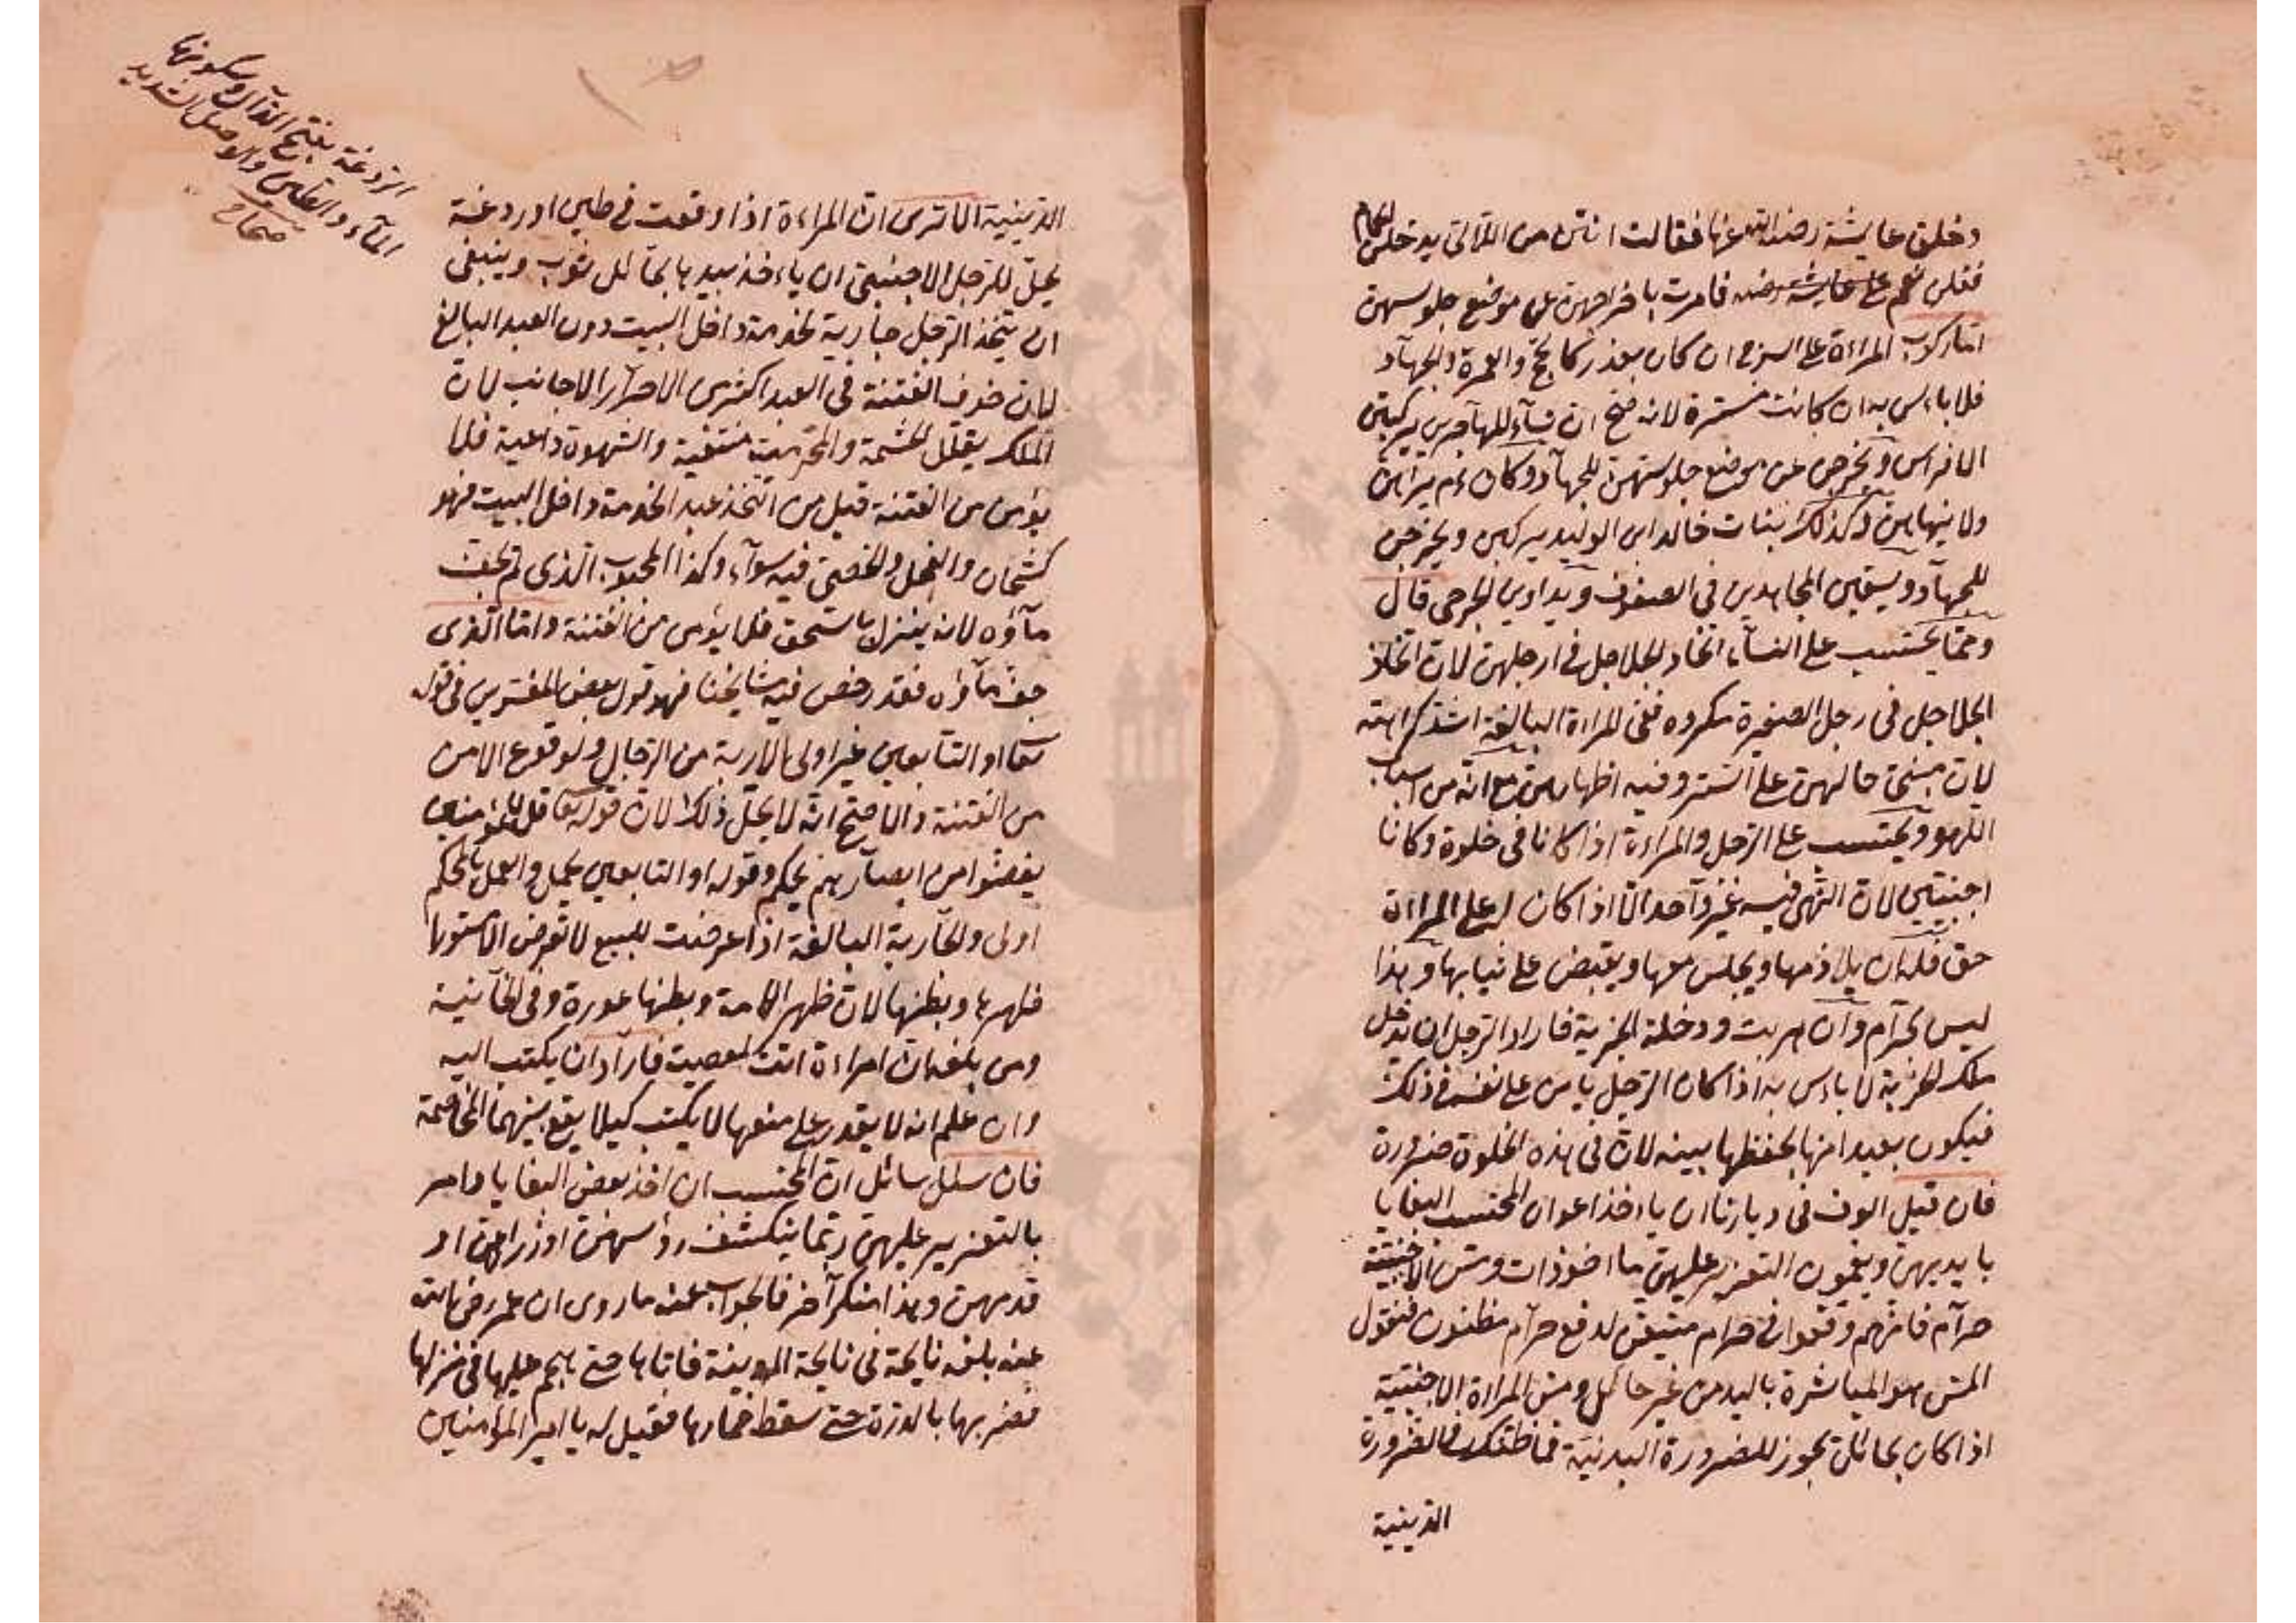 دخلن على عايشة رضى الله عنها فقالت انتن من اللاتى يدخلن الحمام
فقلن نعم فامرت باخراجهن عن موضع جلوسهن
اما ركوب المراة على السرج ان كان بعذر كالحج والعمرة والجهاد
فلا باءس به ان كانت مستترة لانه صح ان نسآء المهاجرين يركبن
الافراس ويخرجن للجهاد وكان عم يراهن
ولا ينهاهن وكذلك بنات خالد ابن الوليد يركبن ويخرجن
للجهاد ويسقين المجاهدين فى الصفوف ويداوين الجرحى قال
ومما يحتسب على النسآء اتخاذ الجلاجل فى ارجلهن لان اتخاذ
الجلاجل فى رجل الصغيرة مكروه ففى المراة البالغة اشد كراهته
لان مبنى حالهن على الستر وفيه اظهارهن مع انه من اسباب
اللهو ويحتسب على الرجل والمراءة اذا كانا فى خلوة وكانا
اجنبيين لان النهى فيه غير واحد الا اذا كان له على المراة
حق فله ان يلازمها ويجلس معها ويقبض على ثيابها وهذا
ليس بحرآم وان هربت ودخلت الخربة فاراد الرجل ان يدخل
تلك الخربة لا باءس به اذا كان الرجل يامن على نفسه فى ذلك
فيكون بعيدا منها يحفظها بعينه لان فى هذه الخلوة ضرورة
فان قيل العرف فى ديارنا ان ياءخذ اعوان المحتسب البغايا
بايديهن ويقيمون التعزير عليهن ماخوذات ومس الاجنبية
حرآم فانهم وقعوا فى حرام متيقن لدفع حرآم مظنون فنقول
المس هو المباشرة باليد من غير حائل ومس المراة الاجنبية
اذا كان بحائل يجوز للضرورة البدنية فما ظنك بالضرورة
الدينية
الدينية الا ترى ان المراءة اذا وقعت فى طين او ردغة
يحل للرجل الاجنبى ان ياءخذ بيدها بحائل ثوب وينبغى
ان يتخذ الرجل جارية لخدمة داخل البيت دون العبد البالغ
لان خوف الفتنة فى العبد اكثر من الاحرآر الاجانب لان
الملك يقلل الحشمة والمحرمية منتفية والشهوة داعية فلا
يؤمن من الفتنة قيل من اتخذ عبدا لخدمة داخل البيت فهو
كشحان والفحل والخصى فيه سوآء وكذا المجبوب الذى لم يجف
مآؤه لانه ينزل بالسحق فلا يؤمن من الفتنة واما الذى
جف مآؤه فقد رخص فيه مشايخنا فهو قول بعض المفسرين فى قوله
تعا او التابعين غير اولى الاربة من الرجال ولوقوع الامن
من الفتنة والاصح انه لا يحل ذلك لان قوله تعا قل للمؤمنين
يغضوا من ابصارهم محكم وقوله او التابعين مجمل والعمل بالمحكم
اولى والجارية البالغة اذا عرضت للبيع لا تعرض الا مستورا
ظهرها وبطنها لان ظهر الامة وبطنها عورة وفى الخآنية
ومن بلغه ان امراءة اتت بمعصيت فارآد ان يكتب اليه
وان علم انه لا يقدر على منعها لا يكتب كيلا يقع بينهما المخاصمة
فان سئل سائل ان المحتسب ان اخذ بعض البغايا وامر
بالتعزير عليهن ربما ينكشف رؤسهن او ذراعهن او
قدمهن وهذا منكر آخر فالجواب عنه ما روى ان عمر رضى الله
عنه بلغه نايحة فى ناحية المدينة فاتاها حتى هجم عليها فى منزلها
فضربها بالدرة حتى سقط خمارها فقيل له يا امير المؤمنين
الردغة بفتح الدال وسكونها
المآء والطين والوحل الشديد
صحاح